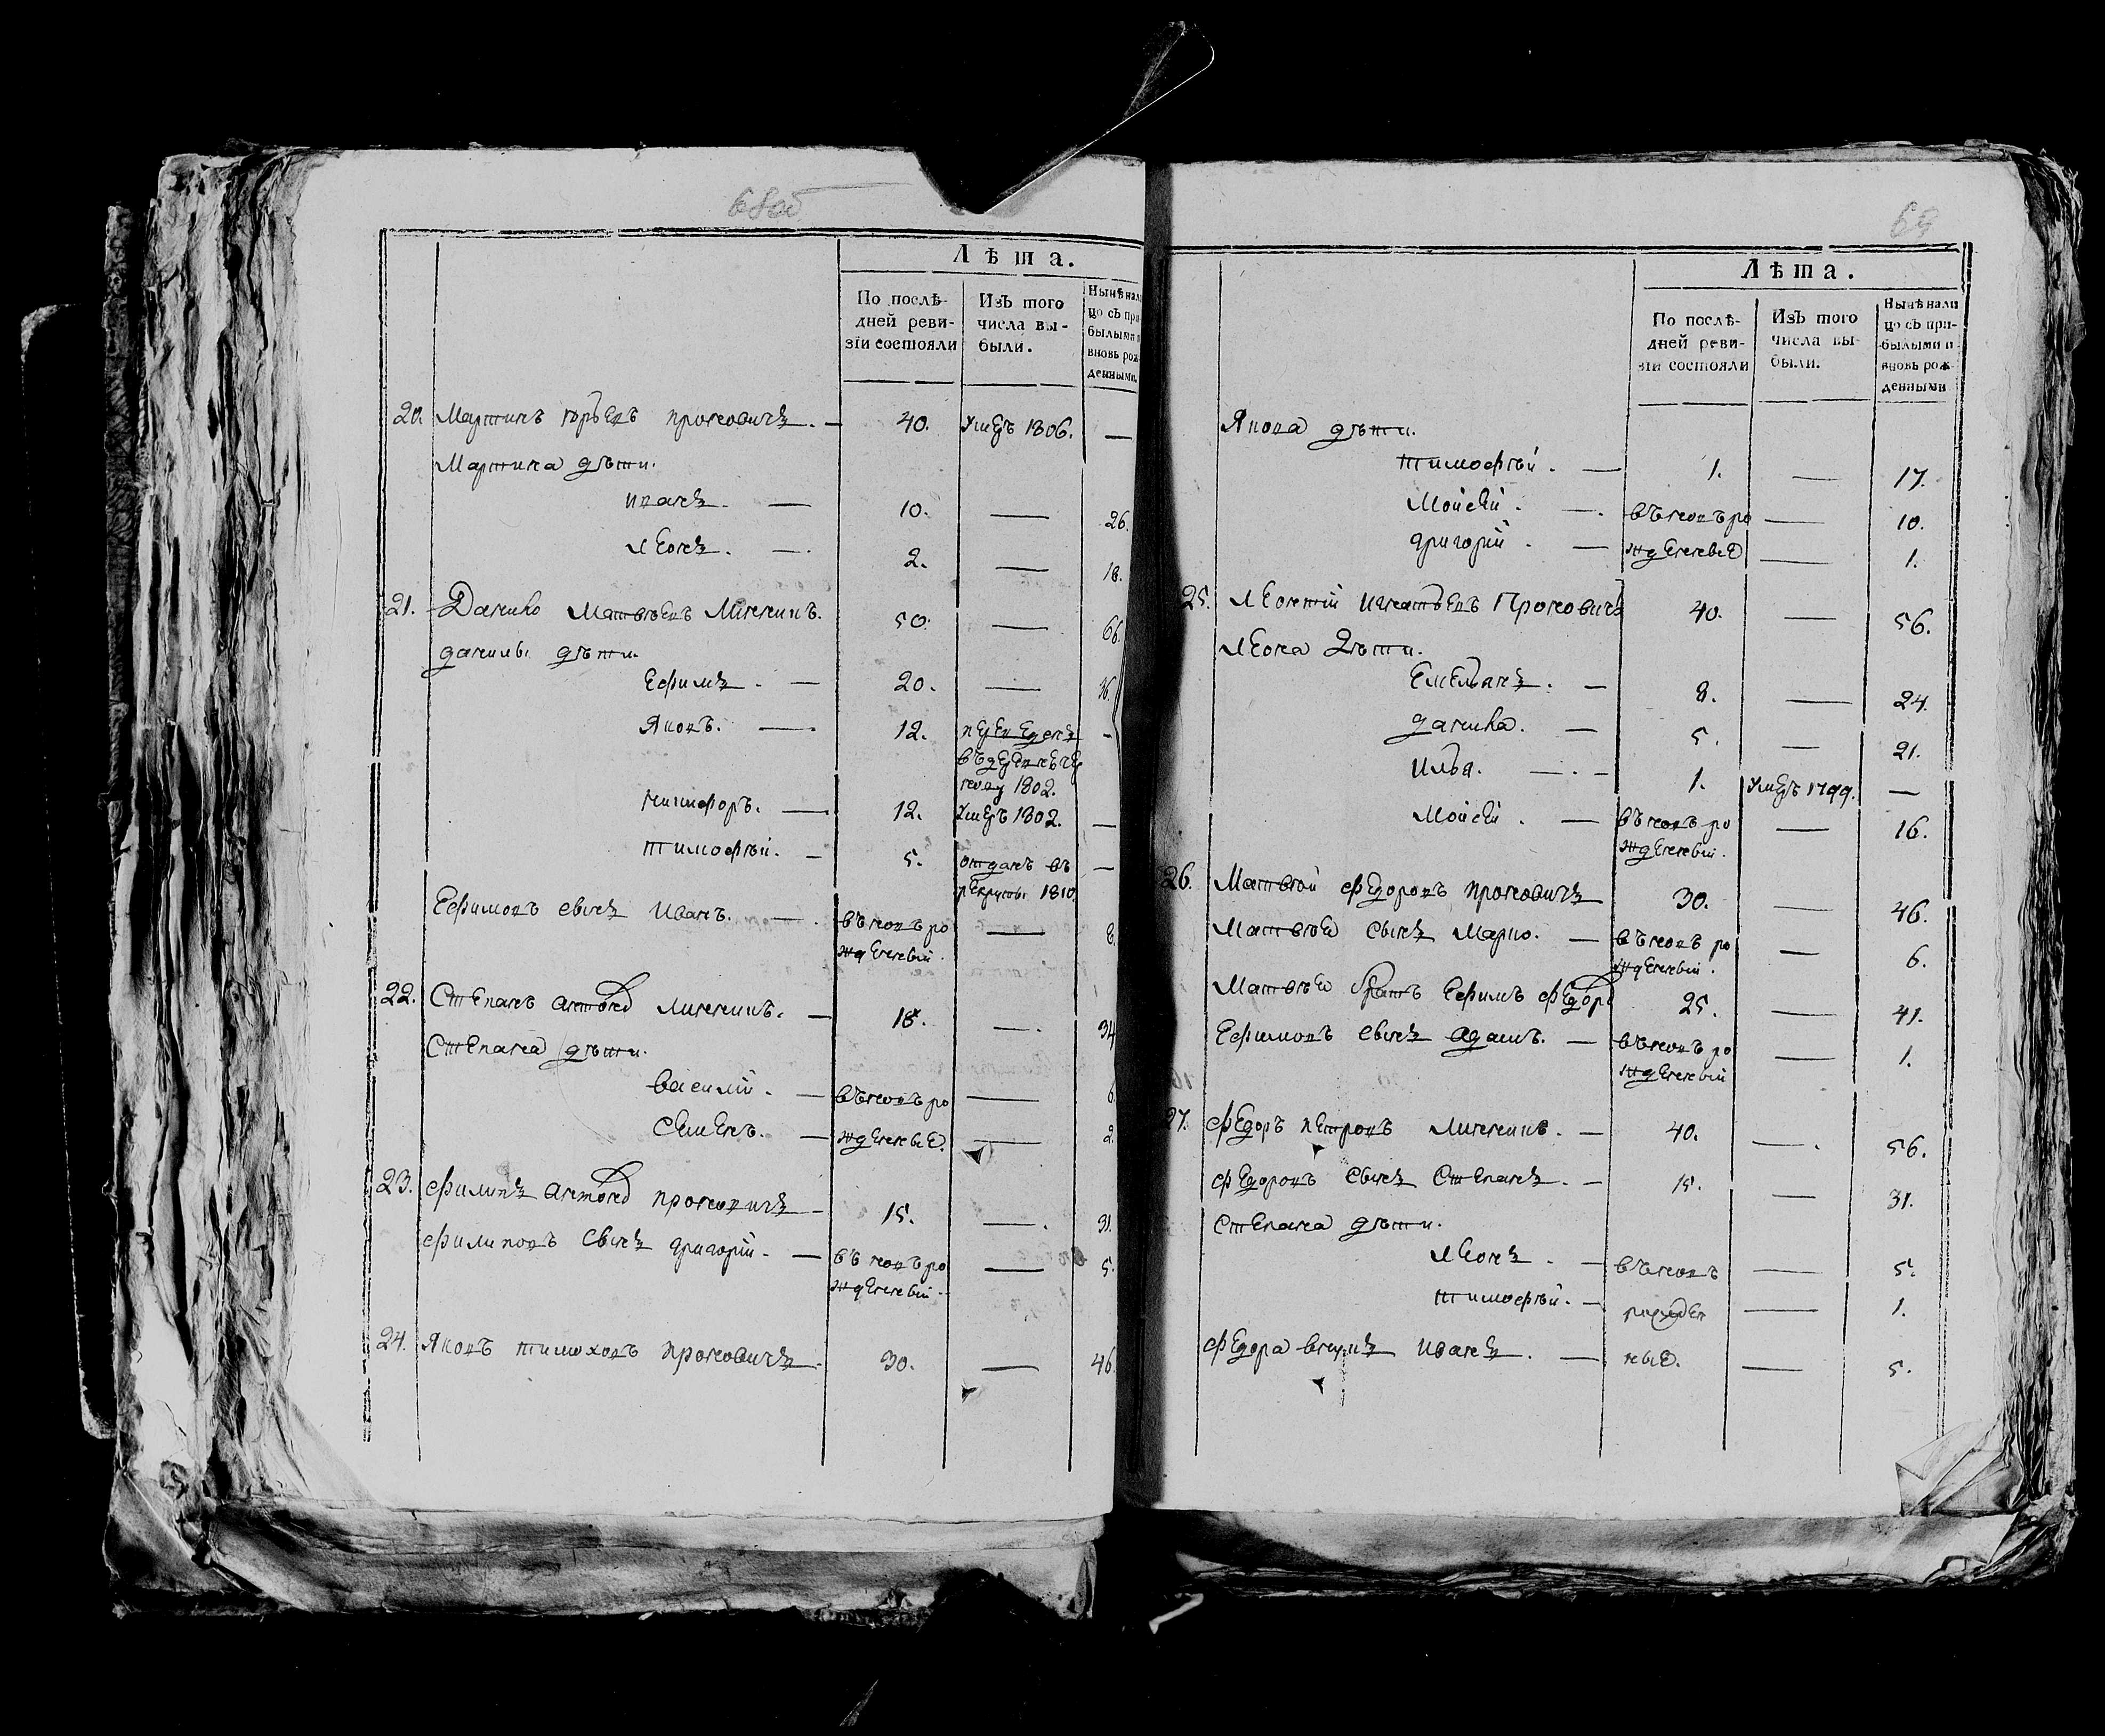 68об
Лѣта.
По послѣ-
дней реви-
зіи состояли
Изъ того
числа вы-
были.
Нынѣ нали
цо съ при
былыми и
вновь рож
денными.
20. Мартинъ Юрьевъ Проковичъ. — 40. Умеръ 1806. —
Мартина дѣти.
Иванъ. — 10. — 26.
Леонъ. — 2. — 18.
21. Данило Матвѣевъ 50. — 66.
Данилы дѣти.
Ефимъ. — 20. — 36.
Яковъ. — 12. переведенъ —
въ
1802.
Никифоръ. — 12. Умеръ 1802. —
Тимофѣй. — 5. отданъ въ —
рекруты 1810
Ефимовъ сынъ Иванъ. — въновъ ро — 8.
жденный.
22. Степанъ — 18. — 34
Степана дѣти.
Василій. — въновъ ро — 6.
Семенъ. — жденные. — 2.
23. Филипъ Проковичъ — 15. — 31.
Филиповъ сынъ Григорій. — въ новъ ро — 5.
жденный.
24. Яковъ Тимоховъ Проковичъ. 30. — 46
69
Лѣта.
По послѣ-
дней реви-
зіи состояли
Изъ того
числа вы-
были.
Нынѣ нали
цо съ при-
былыми и
вновь рож-
денными
Якова дѣти.
Тимофѣй. — 1. — 17.
Мойсей. — въновъ ро — 10.
Григорій. — жденные — 1.
25. Леонтій Игнатьевъ Проковичъ 40. — 56.
Леона дѣти.
Емельянъ. — 8. — 24.
Данила. — 5. — 21.
Илья. — 1. Умеръ 1799. —
Мойсей. — въновъ ро — 16.
жденный.
26. Матвѣй Федоровъ Проковичъ 30. — 46.
Матвѣя сынъ Марко. — въновъ ро — 6.
жденный.
Матвѣя братъ Ефимъ Федоро 25. — 41.
Ефимовъ сынъ Адамъ. — въновъ ро — 1.
жденный
27. Федоръ Петровъ — 40. — 56.
Федоровъ сынъ Степанъ. — 15. — 31.
Степана дѣти.
Леонъ. — въновъ — 5.
Тимофѣй. — рожден — 1.
Федора внукъ Иванъ. — ные. — 5.